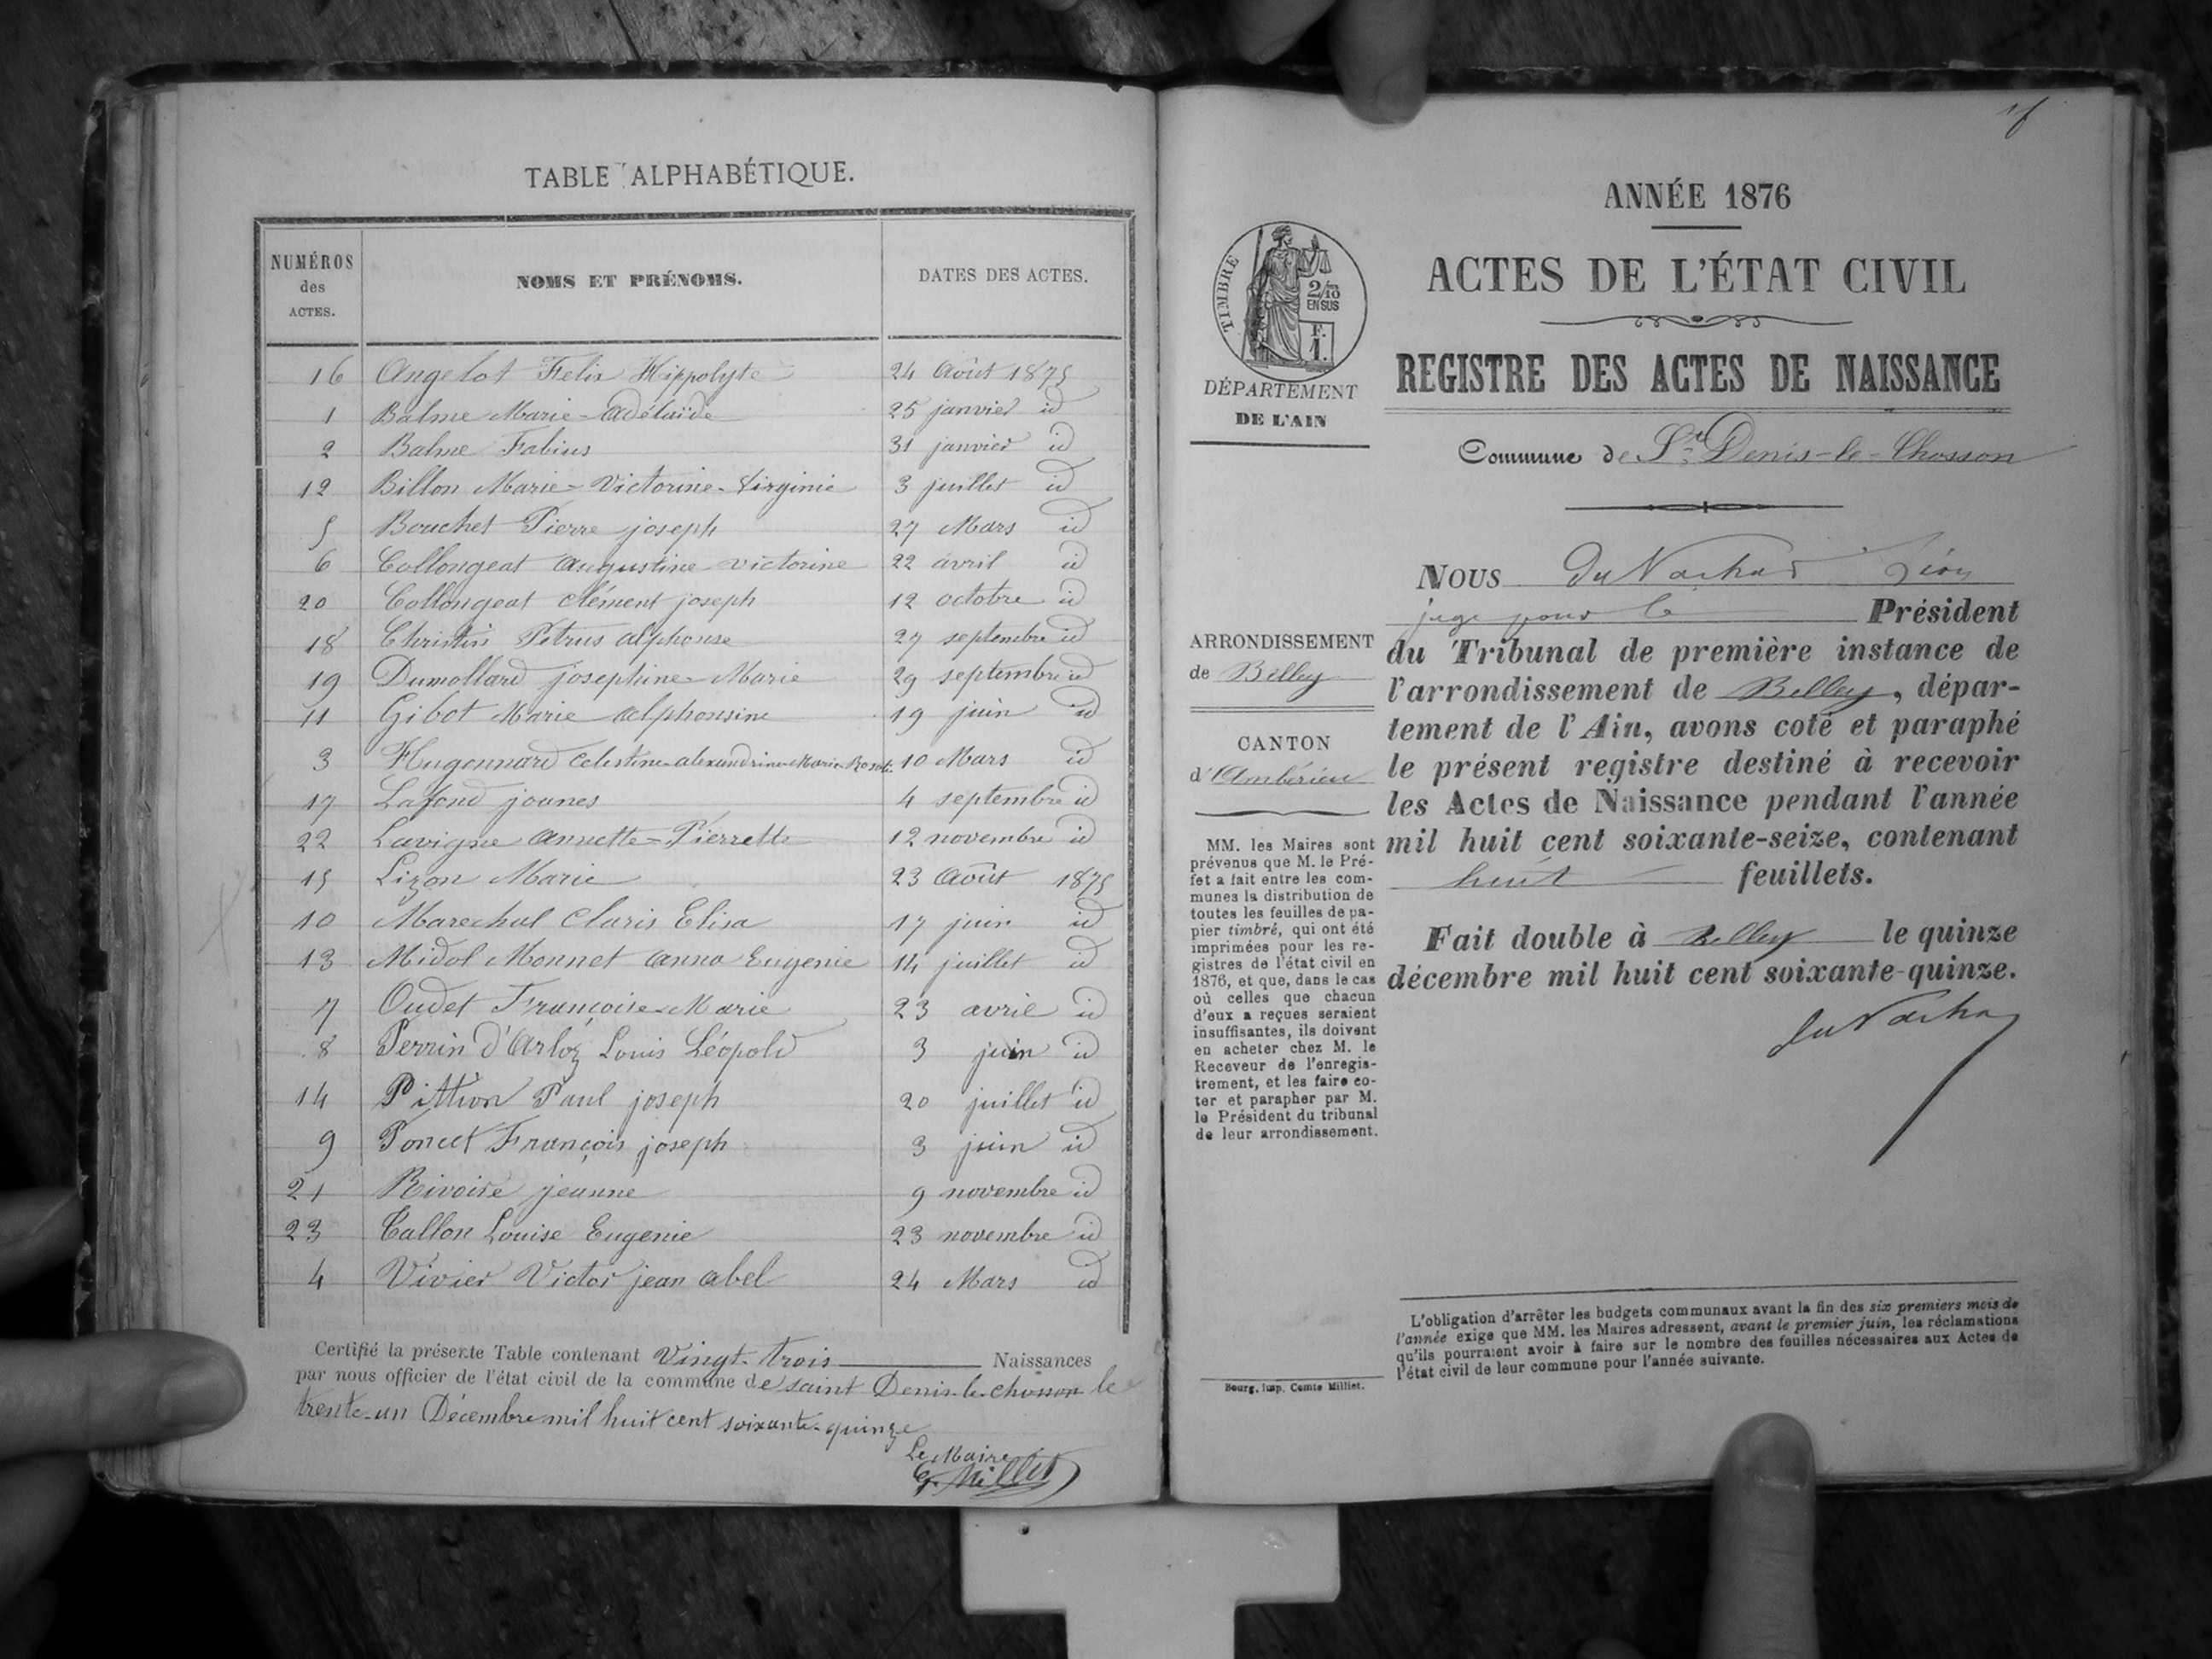 TABLE ALPHABÉTIQUE.
NUMÉROS des ACTES. NOMS ET PRÉNOMS. DATES DES ACTES.
16 Angelot Felix Hippolyte 24 Août 1875
1 Balme Marie-Adélaïde 25 janvier id
2 Balme Fabius 31 janvier id
12 Billon Marie-Victorine-Virginie 3 juillet id
5 Bouchet Pierre joseph 27 Mars id
6 Collongeat Augustine victorine 22 avril id
20 Collongeat Clément joseph 12 octobre id
18 Christin Petrus alphonse 27 septembre id
19 Dumollard josephine Marie 29 septembre id
11 Gibot Marie alphonsine 19 juin id
3 Hugonnard Celestine-alexandrine-Marie 10 Mars id
17 Lafond joanes 4 septembre id
22 Lavigne Annette-Pierrette 12 novembre id
15 Lizon Marie 23 Août 1875
10 Marechal Claris Elisa 17 juin id
13 Midol Monnet Anna Eugenie 14 juillet id
7 Oudet Françoise-Marie 23 avril id
8 Perrin d'Arloz Louis Léopold 3 juin id
14 Pittion Paul joseph 20 juillet id
9 Poncet François joseph 3 juin id
21 Rivoire jeanne 9 novembre id
23 Tallon Louise Eugenie 23 novembre id
4 Vivier Victor jean abel 24 Mars id
Certifié la présente Table contenant Vingt-trois Naissances
par nous officier de l'état civil de la commune de saint Denis-le-chosson le
trente-un Décembre mil huit cent soixante-quinze
Le Maire
G. Millet
ANNÉE 1876
ACTES DE L'ÉTAT CIVIL
REGISTRE DES ACTES DE NAISSANCE
TIMBRE
2/10
EN SUS
F.
1.
DÉPARTEMENT
DE L'AIN
Commune de St Denis-le-Chosson
ARRONDISSEMENT
de Belley
CANTON
d'Ambérieu
MM. les Maires sont
prévenus que M. le Pré-
fet a fait entre les com-
munes la distribution de
toutes les feuilles de pa-
pier timbré, qui ont été
imprimées pour les re-
gistres de l'état civil en
1876, et que, dans le cas
où celles que chacun
d'eux a reçues seraient
insuffisantes, ils doivent
en acheter chez M. le
Receveur de l'enregis-
trement, et les faire co-
ter et parapher par M.
le Président du tribunal
de leur arrondissement.
NOUS du Nachar
juge pour le Président
du Tribunal de première instance de
l'arrondissement de Belley, dépar-
tement de l'Ain, avons coté et paraphé
le présent registre destiné à recevoir
les Actes de Naissance pendant l'année
mil huit cent soixante-seize, contenant
huit feuillets.
Fait double à Belley le quinze
décembre mil huit cent soixante-quinze.
du Nachar
L'obligation d'arrêter les budgets communaux avant la fin des six premiers mois de
l'année exige que MM. les Maires adressent, avant le premier juin, les réclamations
qu'ils pourraient avoir à faire sur le nombre des feuilles nécessaires aux Actes de
l'état civil de leur commune pour l'année suivante.
Bourg, Imp. Comte Milliet.